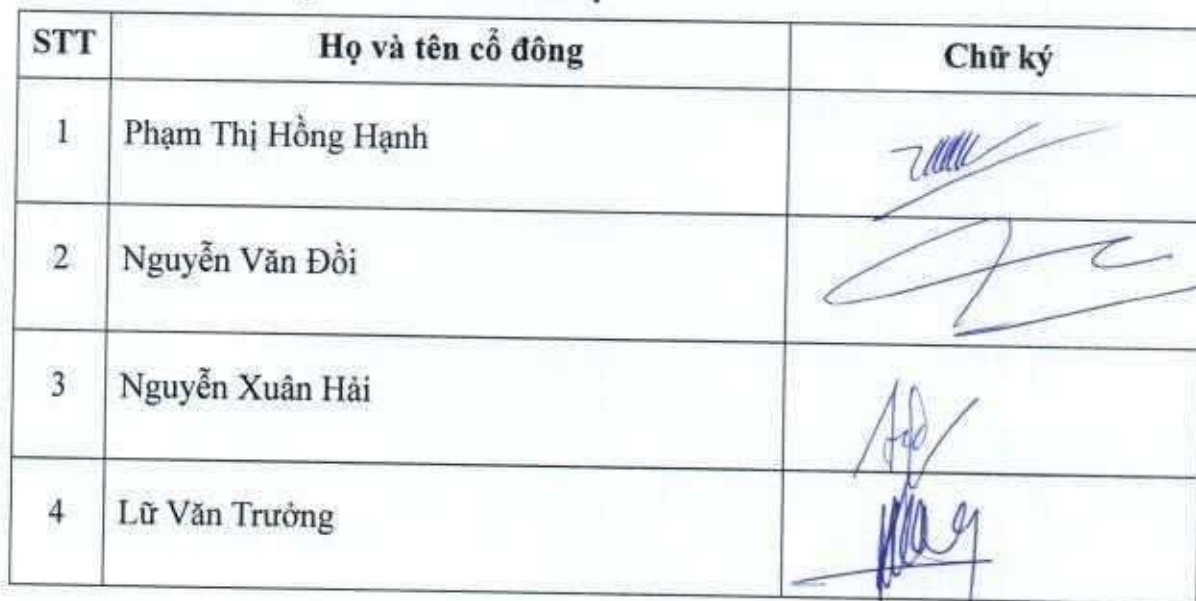 STT Họ và tên cổ đông Chữ ký
1 Phạm Thị Hồng Hạnh
2 Nguyễn Văn Đồi
3 Nguyễn Xuân Hải
4 Lữ Văn Trưởng